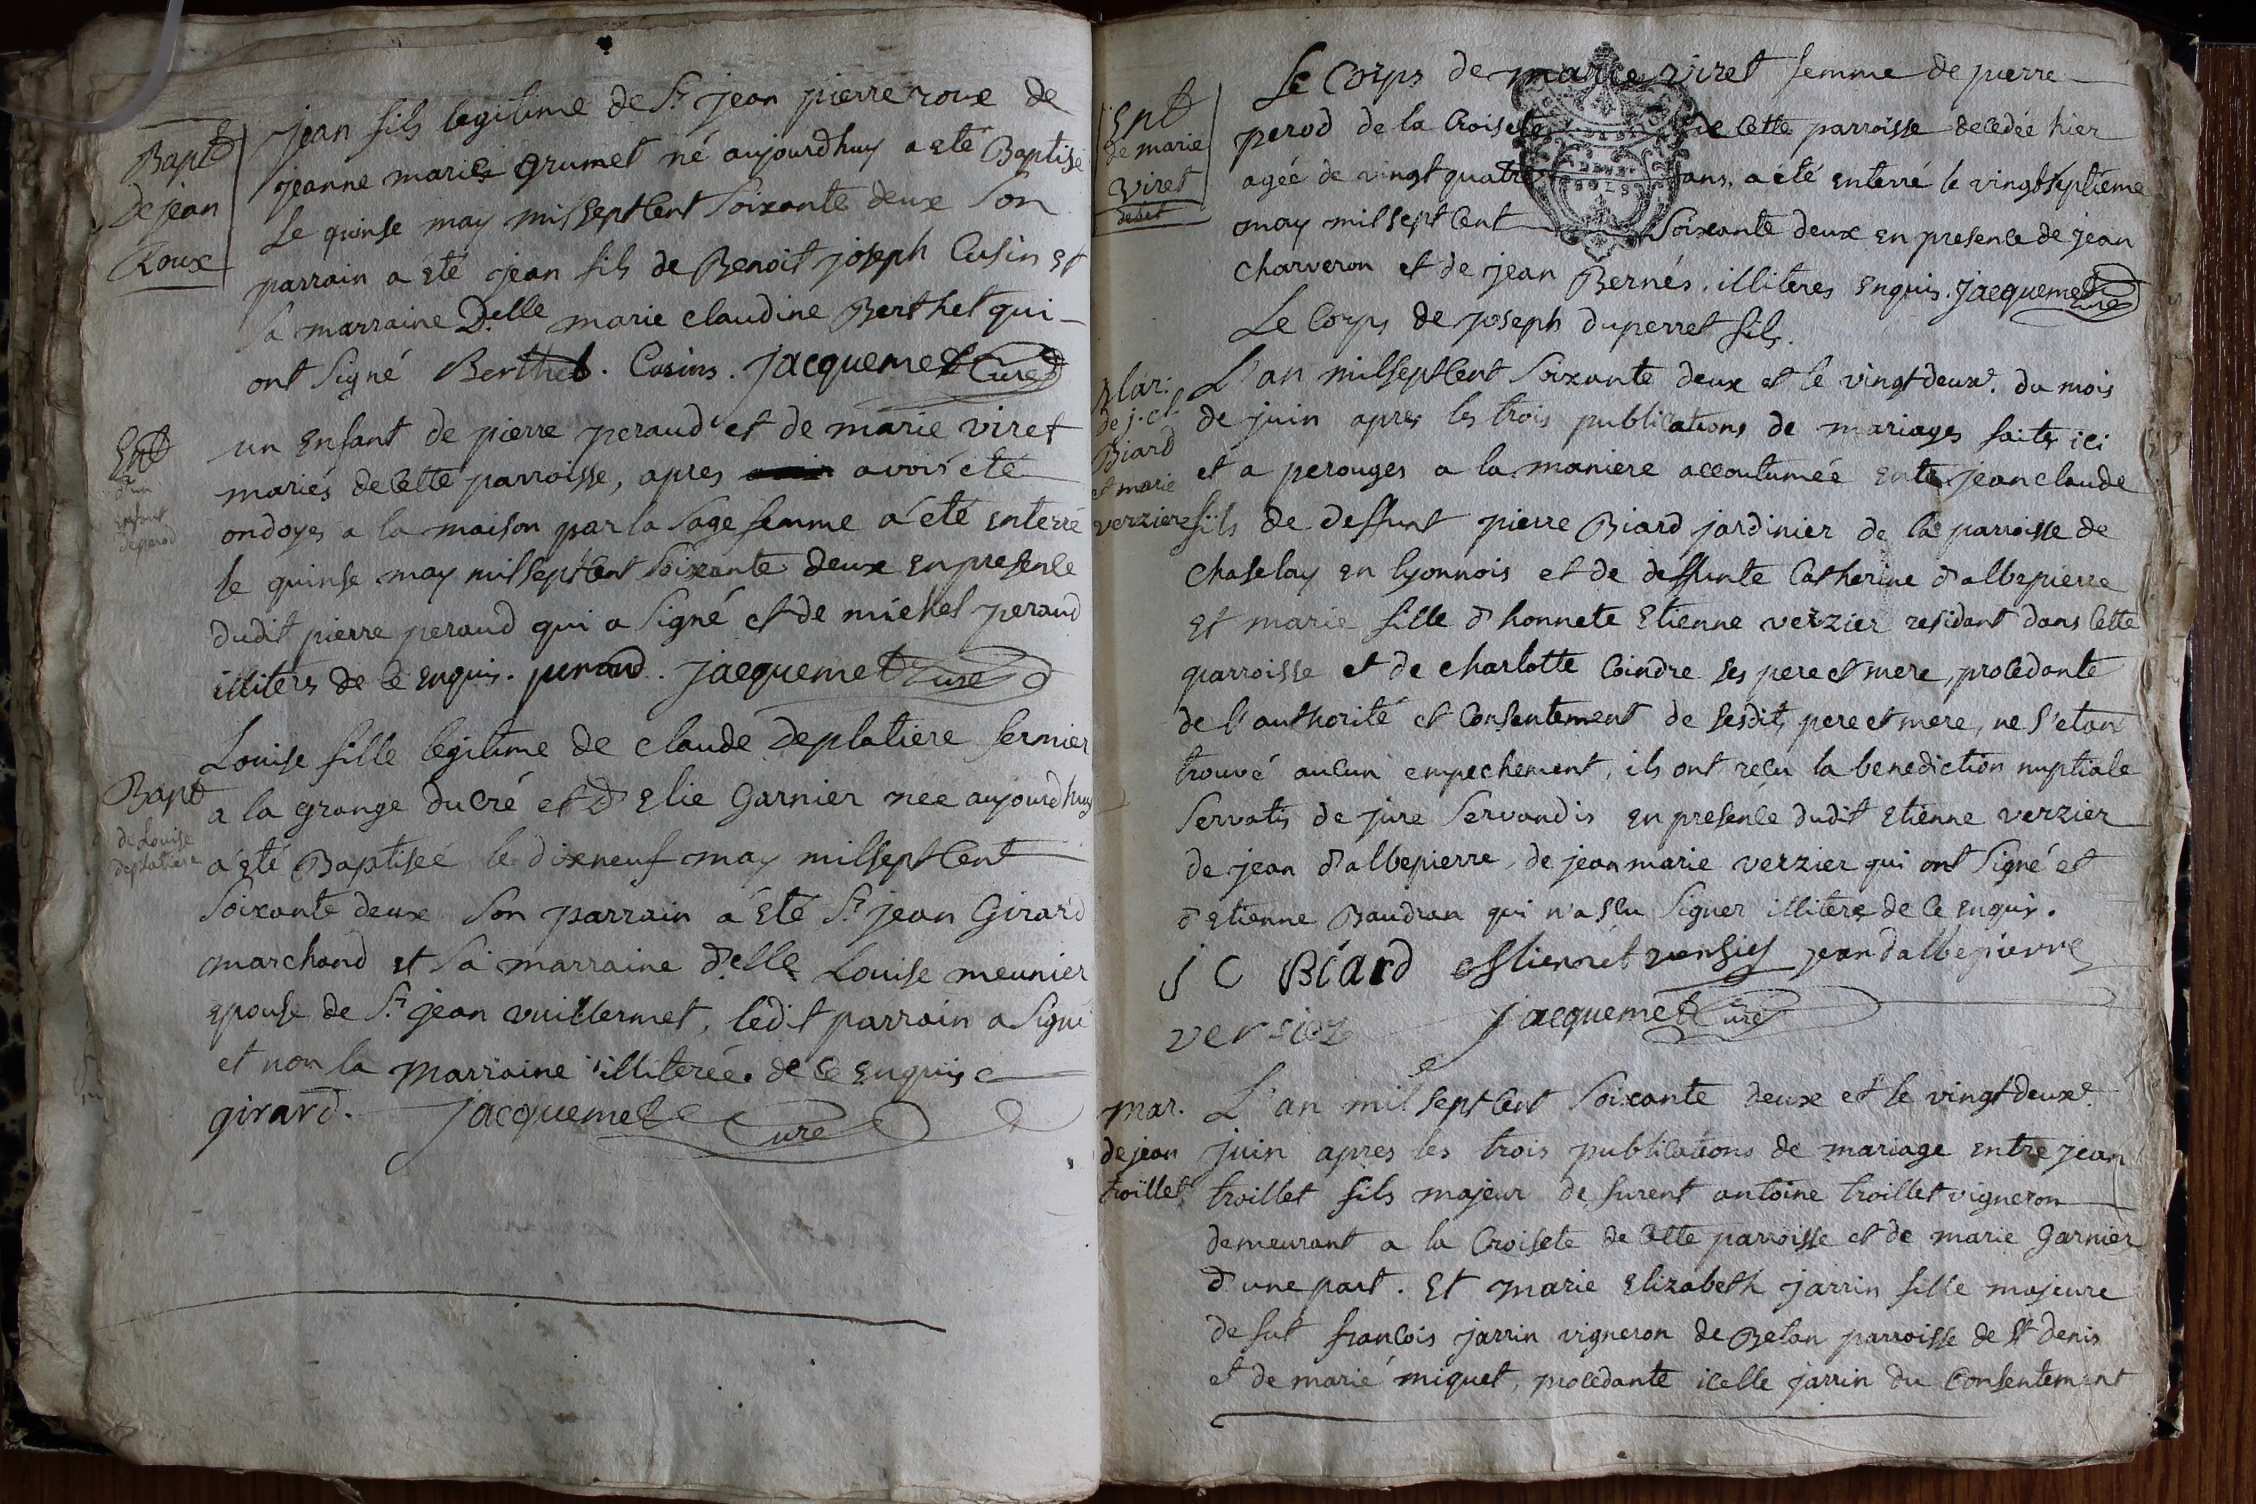 Bapt
de jean
Roux
jean fils legitime de Sr jean pierre roux de
jeanne marie grumet né aujourdhuy a eté Baptisé
Le quinse may milseptcent soixante deux son
parrain a été jean fils de Benoit joseph Cusin et
sa marraine Delle marie claudine Berthet qui
ont signé Berthet. Cusins. jacquemet Curé
Ent
d'un
enfant
de perod
un enfant de pierre peraud et de marie viret
mariés de cette parroisse, apres avoir eté
ondoyé a la maison par la sage femme a été enterré
le quinse may milseptcent soixante deux en presence
dudit pierre peraud qui a signé et de michel peraud
illiterés de ce enquis. peraud. jacquemet Curé
Bapt
de Louise
deplatiere
Louise fille legitime de claude Deplatiere fermier
a la grange du Cré et d'Elie Garnier née aujourdhuy
a été Baptiseé le dixneuf may milseptcent
soixante deux son parrain a été Sr jean Girard
marchand et sa marraine delle Louise meunier
epouse de Sr jean vuillermet, ledit parrain a signé
et non la marraine illitereé de ce enquise
girard. jacquemet Curé
Ent
de marie
viret
Le Corps de marie viret femme de pierre
perod de la Croisete de cette parroisse decedée hier
ageé de vingt quatre ans, a été enterré le vingtseptieme
may milseptcent soixante deux en presence de jean
charveron et de jean Bernés. illiteres enquis. jacquemet Curé
Le Corps de joseph duperret fils.
Mar.
de j. cl.
Biard
et marie
verziere
L'an milseptcent soixante deux et le vingtdeuxe. du mois
de juin apres les trois publications de mariages faites ici
et a perouges a la maniere accoutumeé entre jean claude
fils de deffunt pierre Biard jardinier de la parroisse de
chaselay en lyonnois et de deffunte Catherine d'albepierre
et marie fille d'honnete Etienne verzier residant dans cette
parroisse et de charlotte Coindre ses pere et mere, procedante
de l'authorité et Consentement de sesdits pere et mere, ne s'etant
trouvé aucun empechement, ils ont reçu la benediction nuptiale
servatis de jure servandis en presence dudit Etienne verzier
de jean d'albepierre, de jean marie verzier qui ont signé et
d'Etienne Baudran qui n'a sçu signer illiteré de ce enquis.
J C Biard estienne versier jean dalbepierre
versier jacquemet Curé
mar.
de jean
troillet
L'an mil septcent soixante deux et le vingtdeuxe.
juin apres les trois publications de mariage entre jean
troillet fils majeur de furent antoine troillet vigneron
demeurant a la Croisete de cette parroisse et de marie Garnier
d'une part. Et marie Elizabeth jarrin fille majeure
de fut francois jarrin vigneron de Betan parroisse de St denis
et de marie miquet, procedante icelle jarrin du Consentement